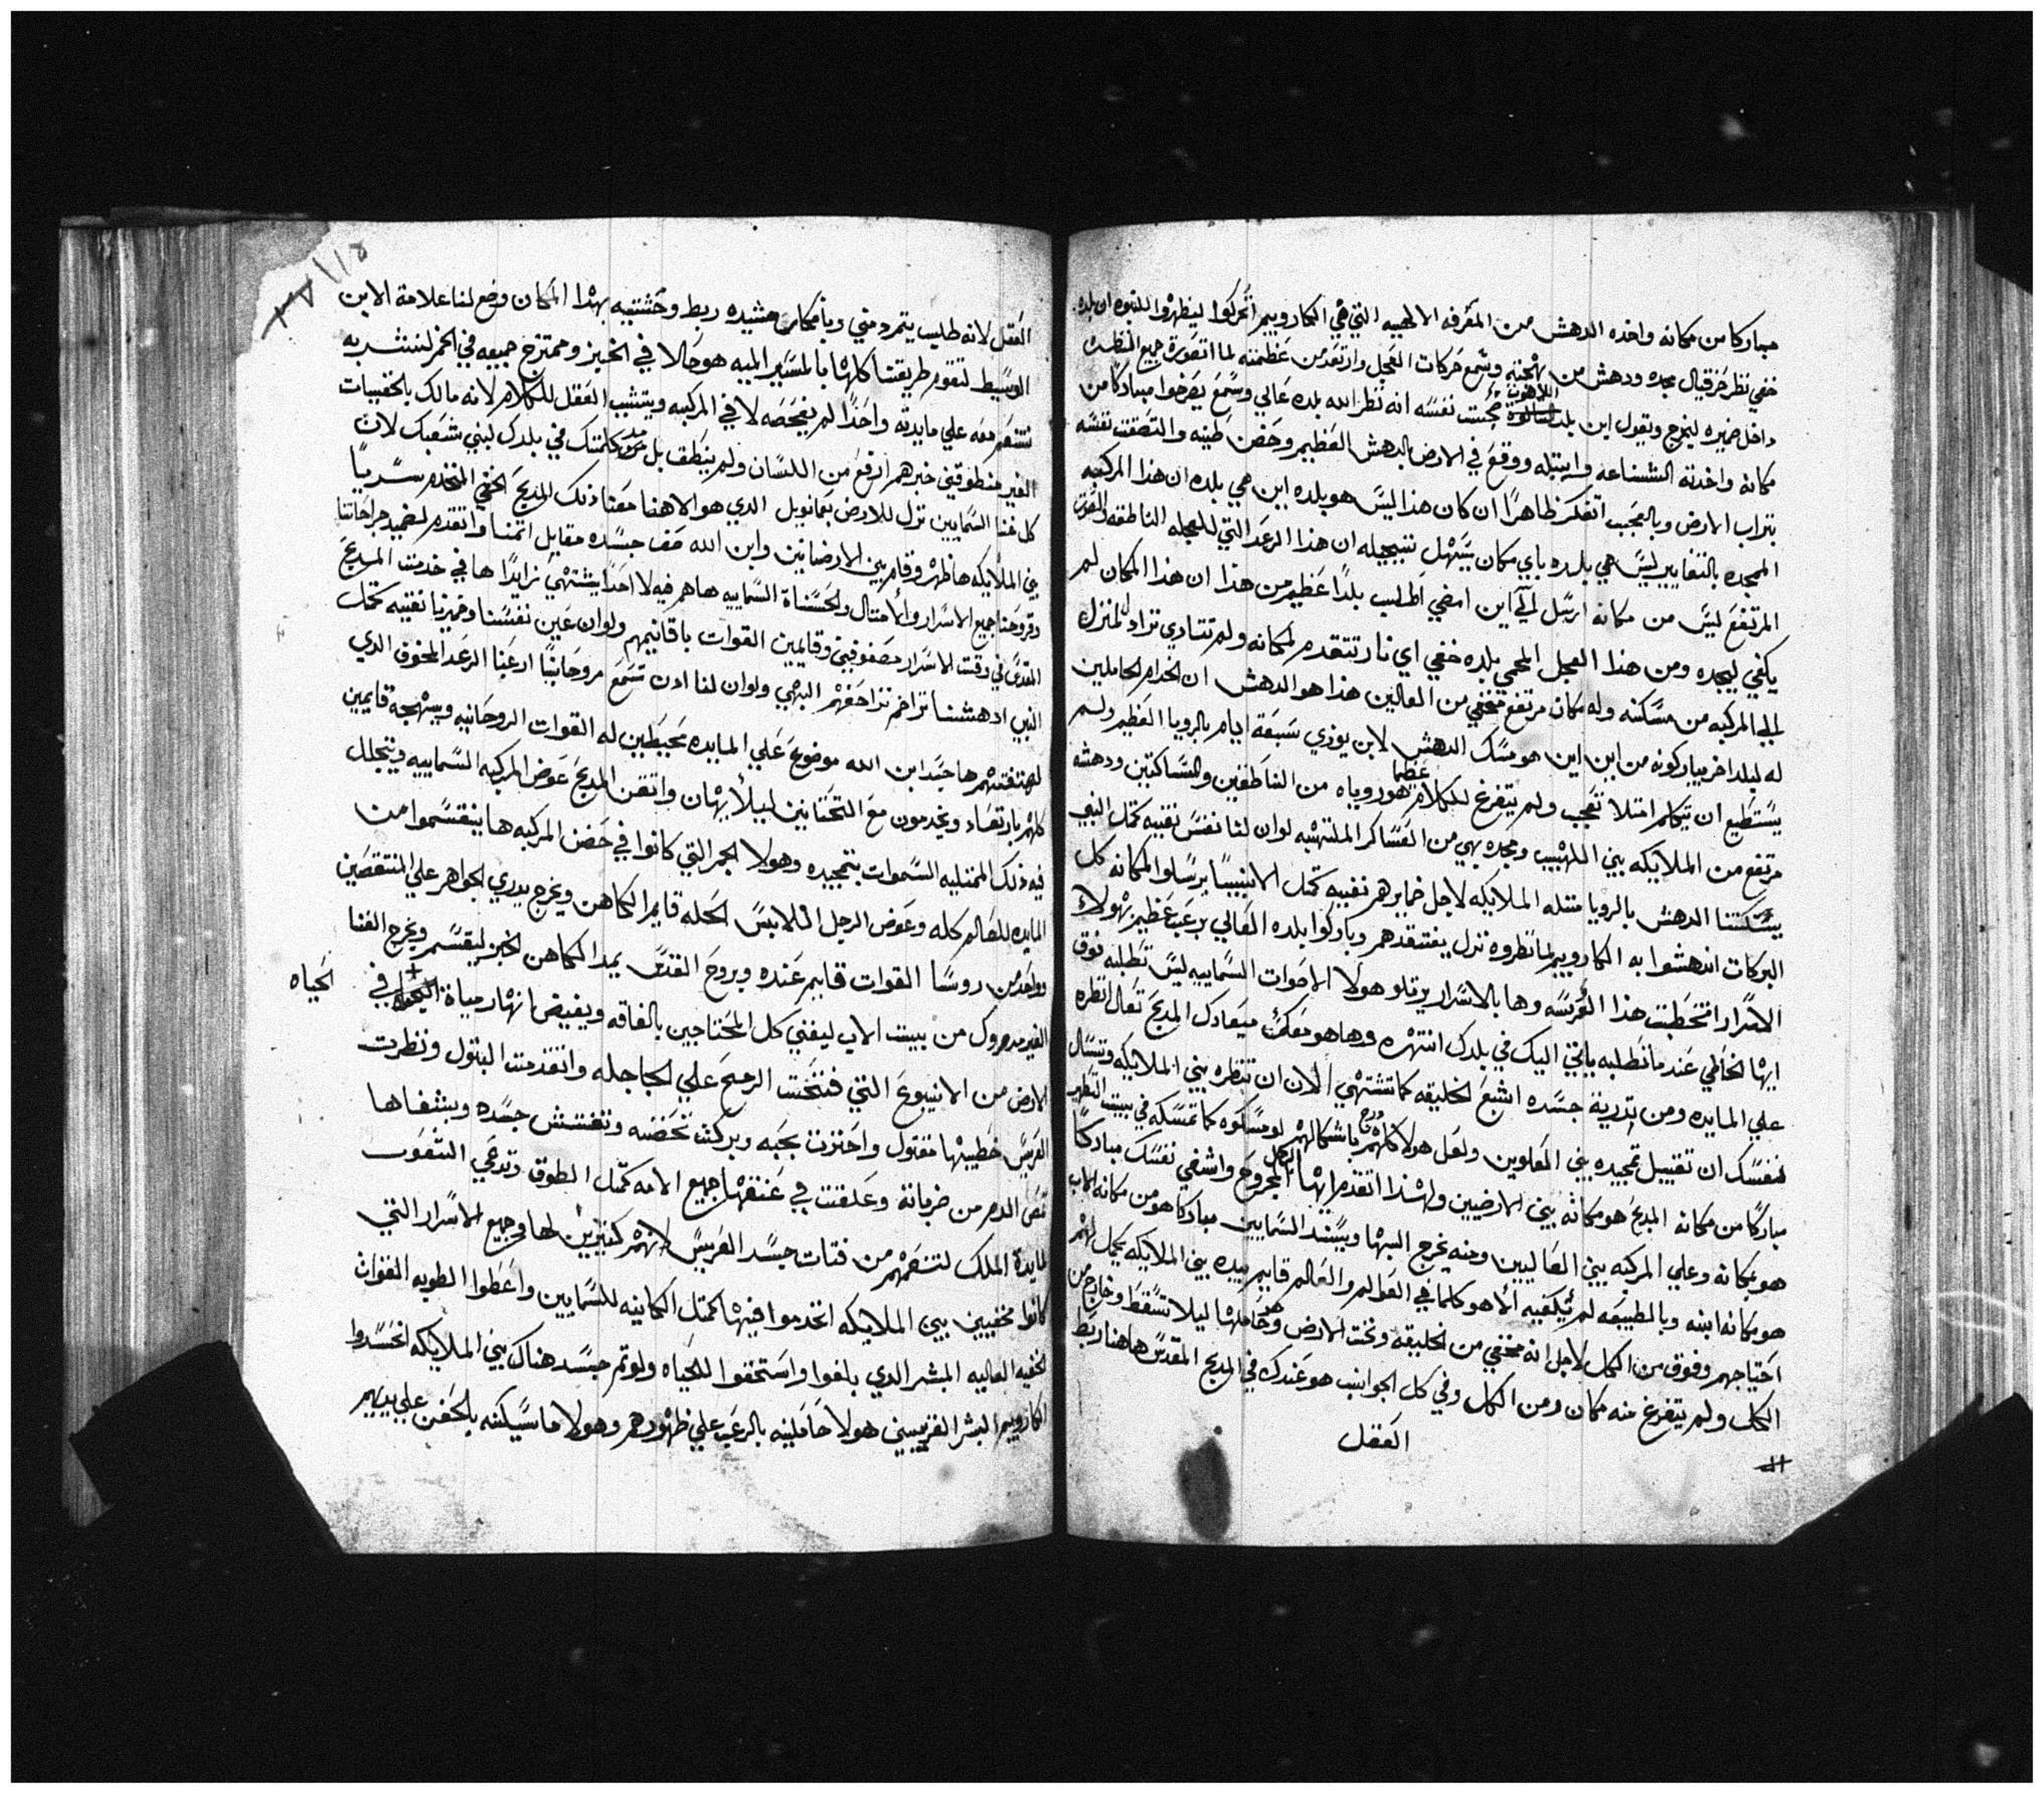 مباركا من مكانه واخده الدهش من المعرفه الالهيه التي هي الكاروبيم اتحركوا ليظهروا للنبوه ان بلده
خفي نظر حزقيال مجده ودهش من بهجته وسمع حركات العجل وارتعد من عظمته لما اتصورة جميع المنظره
داخل ضميره ليخرج ويقول اين بلد اللاهوت نفسه انه نظر الله بلده عالي وسمع يصرخوا مباركا من
مكانه واخدته الشناعه وابتله ووقع في الارض بالدهش العظيم وحضن طينه والتصقت نفسه
بتراب الارض وبالعجب اتفكر ظاهرا ان كان هذا ليس هو بلده اين هي بلده ان هذا المركبه
الممجده بالتغايير ليس هي بلده باي مكان يسهل ان هذا الرعد التي للعجله الناطقه
المرتفع ليس من مكانه ارسل الي اين امضي اطلب بلدا عظيم من هذا ان هذا المكان لم
يكفي ليمجده ومن هذا العجل المحمي بلده خفي اي نار تتقدم لمكانه ولم
الي المركبه من مسكنه وله مكان مرتفع مخفي من العالين هذا هو الدهش ان الخدام الحاملين
له لبلد اخر يباركونه من اين اين هو مسك الدهش لابن بوزي سبعة ايام بالرويا العظيم ولم
يستطيع ان يتكلم امتلا تعجب ولم يتفرغ للكلام عضما هو روياه من الناطقين والساكتين ودهشه
مرتفع من الملايكه بيني اللهيب ومجده بهي من العساكر الملتهبه لوان لنا نفس نقيه كمتل النبي
يسكتنا الدهش بالرويا متله الملايكه لاجل ضمايرهم نقيه كمتل الانبيا يرسلوا لمكانه كل
البركات اندهشوا به الكاروبيم لما نظروه نزل يفتقدهم وباركوا بلده العالي برعب عظيم بهولاء
الاسرار اتخطبت هذا العرسه وها بالاسرار يرتلو هولا الاصوات السماييه ليس تطلبه فوق
ايها الخاطي عند ما تطلبه ياتي اليك في بلدك انتهره وها هو معك ميعادك المدبح تعال انظره
علي المايده ومن تدرية جسده اشبع الخليقه كما تشتهي الان ان تنظره بيني الملايكه وتسال
لنفسك ان تقتبل تمجيده بني العلوين ولعل هولا كلهم باشكالهم لو مسكوه كما تمسكه في بيت
مباركا من مكانه المدبح هو مكانه بيني الارضيين ولهذا اتقدم ايها الرجل المجروح واشفي نفسك مباركا
هو بمكانه وعلي المركبه بيني العاليين ومنه يخرج البها ويسند السمايين مباركا هو من مكانه الاب
هو مكانه ابنه وبالطبيعه لم يكفيه الا هو كلما في العوالم والعالم قايم بيده بيني الملايكه يكمل لهم
احتياجهم وفوق من الكل لاجل انه مخفي من الخليقه وتحت الارض وهو حاملها ليلا تسقط وخارج من
الكل ولم يتفرغ منه مكان ومن الكل وفي كل الجوانب هو عندك في المدبح المقدس هاهنا ربط
العقل
العقل لانه طلب يتمرد مني وبامكان مشيده ربط وحشتيه بهدا المكان وضع لنا علامة الابن
الوسيط لتقوم طريقتنا كلها بالمسير اليه هو حالا في الخبز وممتزج جميعه في الخمر لنشربه
نتنعم معه علي مايدته واحدا لم يفحصه لا في المركبه ويتشبب العقل للكلام لانه مالك بالخفييات
الغير منطوقيني خبرهم ارفع من اللسان ولم ينطق بل كلمتك في بلدك لبني شعبك لان
كل غنا السمايين نزل للارض بعمانويل الدي هو الاهنا معنا ذلك المدبح الخفي المتخدم سريا
بني الملايكه ها ظهر وقام بين الارضانين وابن الله جسده مقابل اتمنا واتقدم لضميد جراحاتنا
وقروحنا جميع الاسرار والامتال والحسناة السماييه هاهم فيه لا احدا يشتهي زايدا ها في خدمت المدبح
المقدس في وقت الاسرار مصفوفيني وقايمين القوات باقانيمهم ولوان عين نفسنا وضميرنا نقيه كمتل
النبي ادهشنا تزاحفهم البهي ولوان لنا ادن تسمع روحانيا ارعبنا الرعد المخوف الدي
لهتفتهم ها جسد ابن الله موضوع علي المايده محيطين له القوات الروحانيه وببهجه قايمين
كلهم بارتعاد ويخدمون مع التحتانين ليلا يهان واتقن المدبح عوض المركبه السماييه ويتجلل
فيه ذلك الممتليه السموات بتمجيده وهولا الجمر التي كانوا في حضن المركبه ها ينقسموا من
المايده للعالم كله وعوض الرجل اللابس الحله قايم الكاهن ويخرج يدري الجواهر علي المنتقصين
وواحد من روسا القوات قايم عنده وبروح القدس يمد الكاهن الخبز ليقسم ويخرج الغنا
الغير مدروك من بيت الاب ليغني كل المحتاجين بالفاقه ويفيض انهار مياة الحياه في
الارض من الانبوع التي فتحت الرمح علي الجاجله واتقدمت البتول ونظرت
العريس خطيبها مقتول واحتزنت بجبه وبركت تحضنه وتفتش جسده وبشفاها
تمص الدم من ضرباته وعلقت في عنقها جميع الامه كمتل الطوق وتدعي الشعوب
لمايدة الملك لتنعمهم من فتات جسد العريس لانهم كتيرين لها وجميع الاسرار التي
كانوا مخفيين بين الملايكه اتخدموا فيها كمتل الكهانيه للسمايين واعطوا الطوبه القوات
الخفيه العاليه المبشر الدي بلغوا واستحقوا للحياه ولو تم جسد هناك بيني الملايكه لحسدوا
الكاروبيم البشر الغريبيني هولا حاملينه بالرعب علي ظهورهم وهولا ماسكينه بالحفن علي يديهم